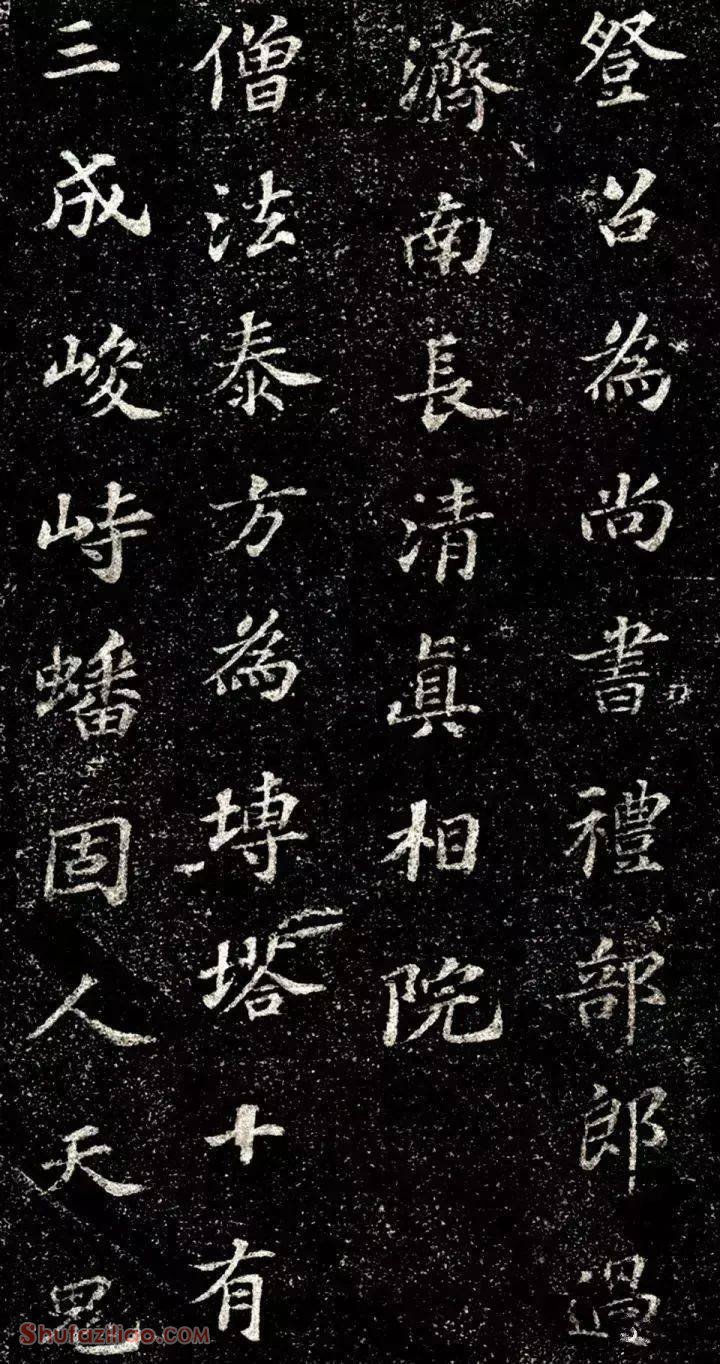 登召為尚書禮部郎過
濟南長清真相院
僧法泰方為塼塔十有
三成峻峙蟠固人天鬼
Shufaziliao.COM